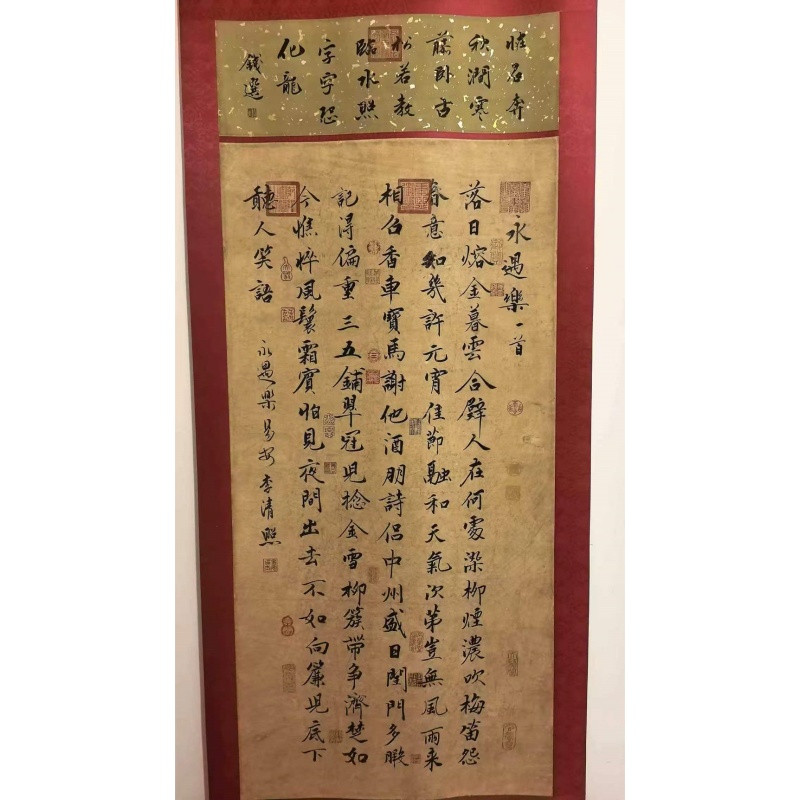 恠石奔
秋澗寒
藤卧古
松若教
臨水照
字字恐
化龍
錢選
永遇樂一首
落日熔金暮雲合璧人在何處染柳煙濃吹梅笛怨
春意知幾許元宵佳節融和天氣次第豈無風雨来
相召香車寶馬謝他酒朋詩侶中州盛日閨門多暇
記得偏重三五鋪翠冠兒捻金雪柳簇帶争濟楚如
今憔悴風鬟霜賓怕見夜間出去不如向簾兒底下
聽人笑語
永遇樂易安李清照